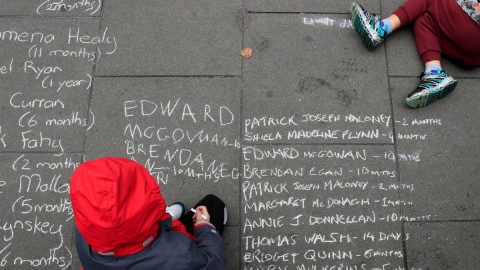 (2 months)
mena Healy
(11 months)
el Ryan
(1 year)
Curran
(6 months)
k Fahy
(2 months)
Mollo
(5 mon
ynskey
(7 mo
EDWARD
MCGOWAN
BRENDAN
PATRICK JOSEPH MALONEY - 2 MONTHS
SHEILA MADELINE FLYNN -
EDWARD MCGOWAN - 10
BRENDAN EGAN - 10 MTHS
PATRICK JOSEPH MALONEY - 2 MTHS
MARGARET MCDONAGH - 1 MTH
ANNIE J DONNELLAN - 6 MTHS
THOMAS WALSH - 14 DAYS
BRIDGET QUINN - 6 MTHS
MARY MULKERINS